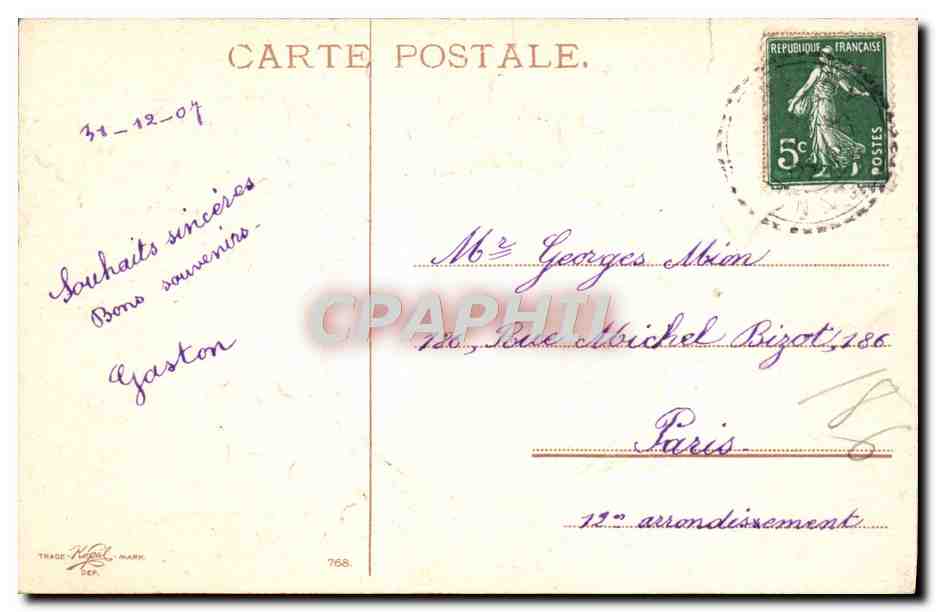 CARTE POSTALE.
RÉPUBLIQUE FRANÇAISE
5c
POSTES
31-12-07
Souhaits sincères
Bons souvenirs.
Gaston
Mr Georges Mion
186, Rue Michel Bizot, 186
Paris
12e arrondissement
CPAPHIL
TRADE - Kopal - MARK
DEP.
768.